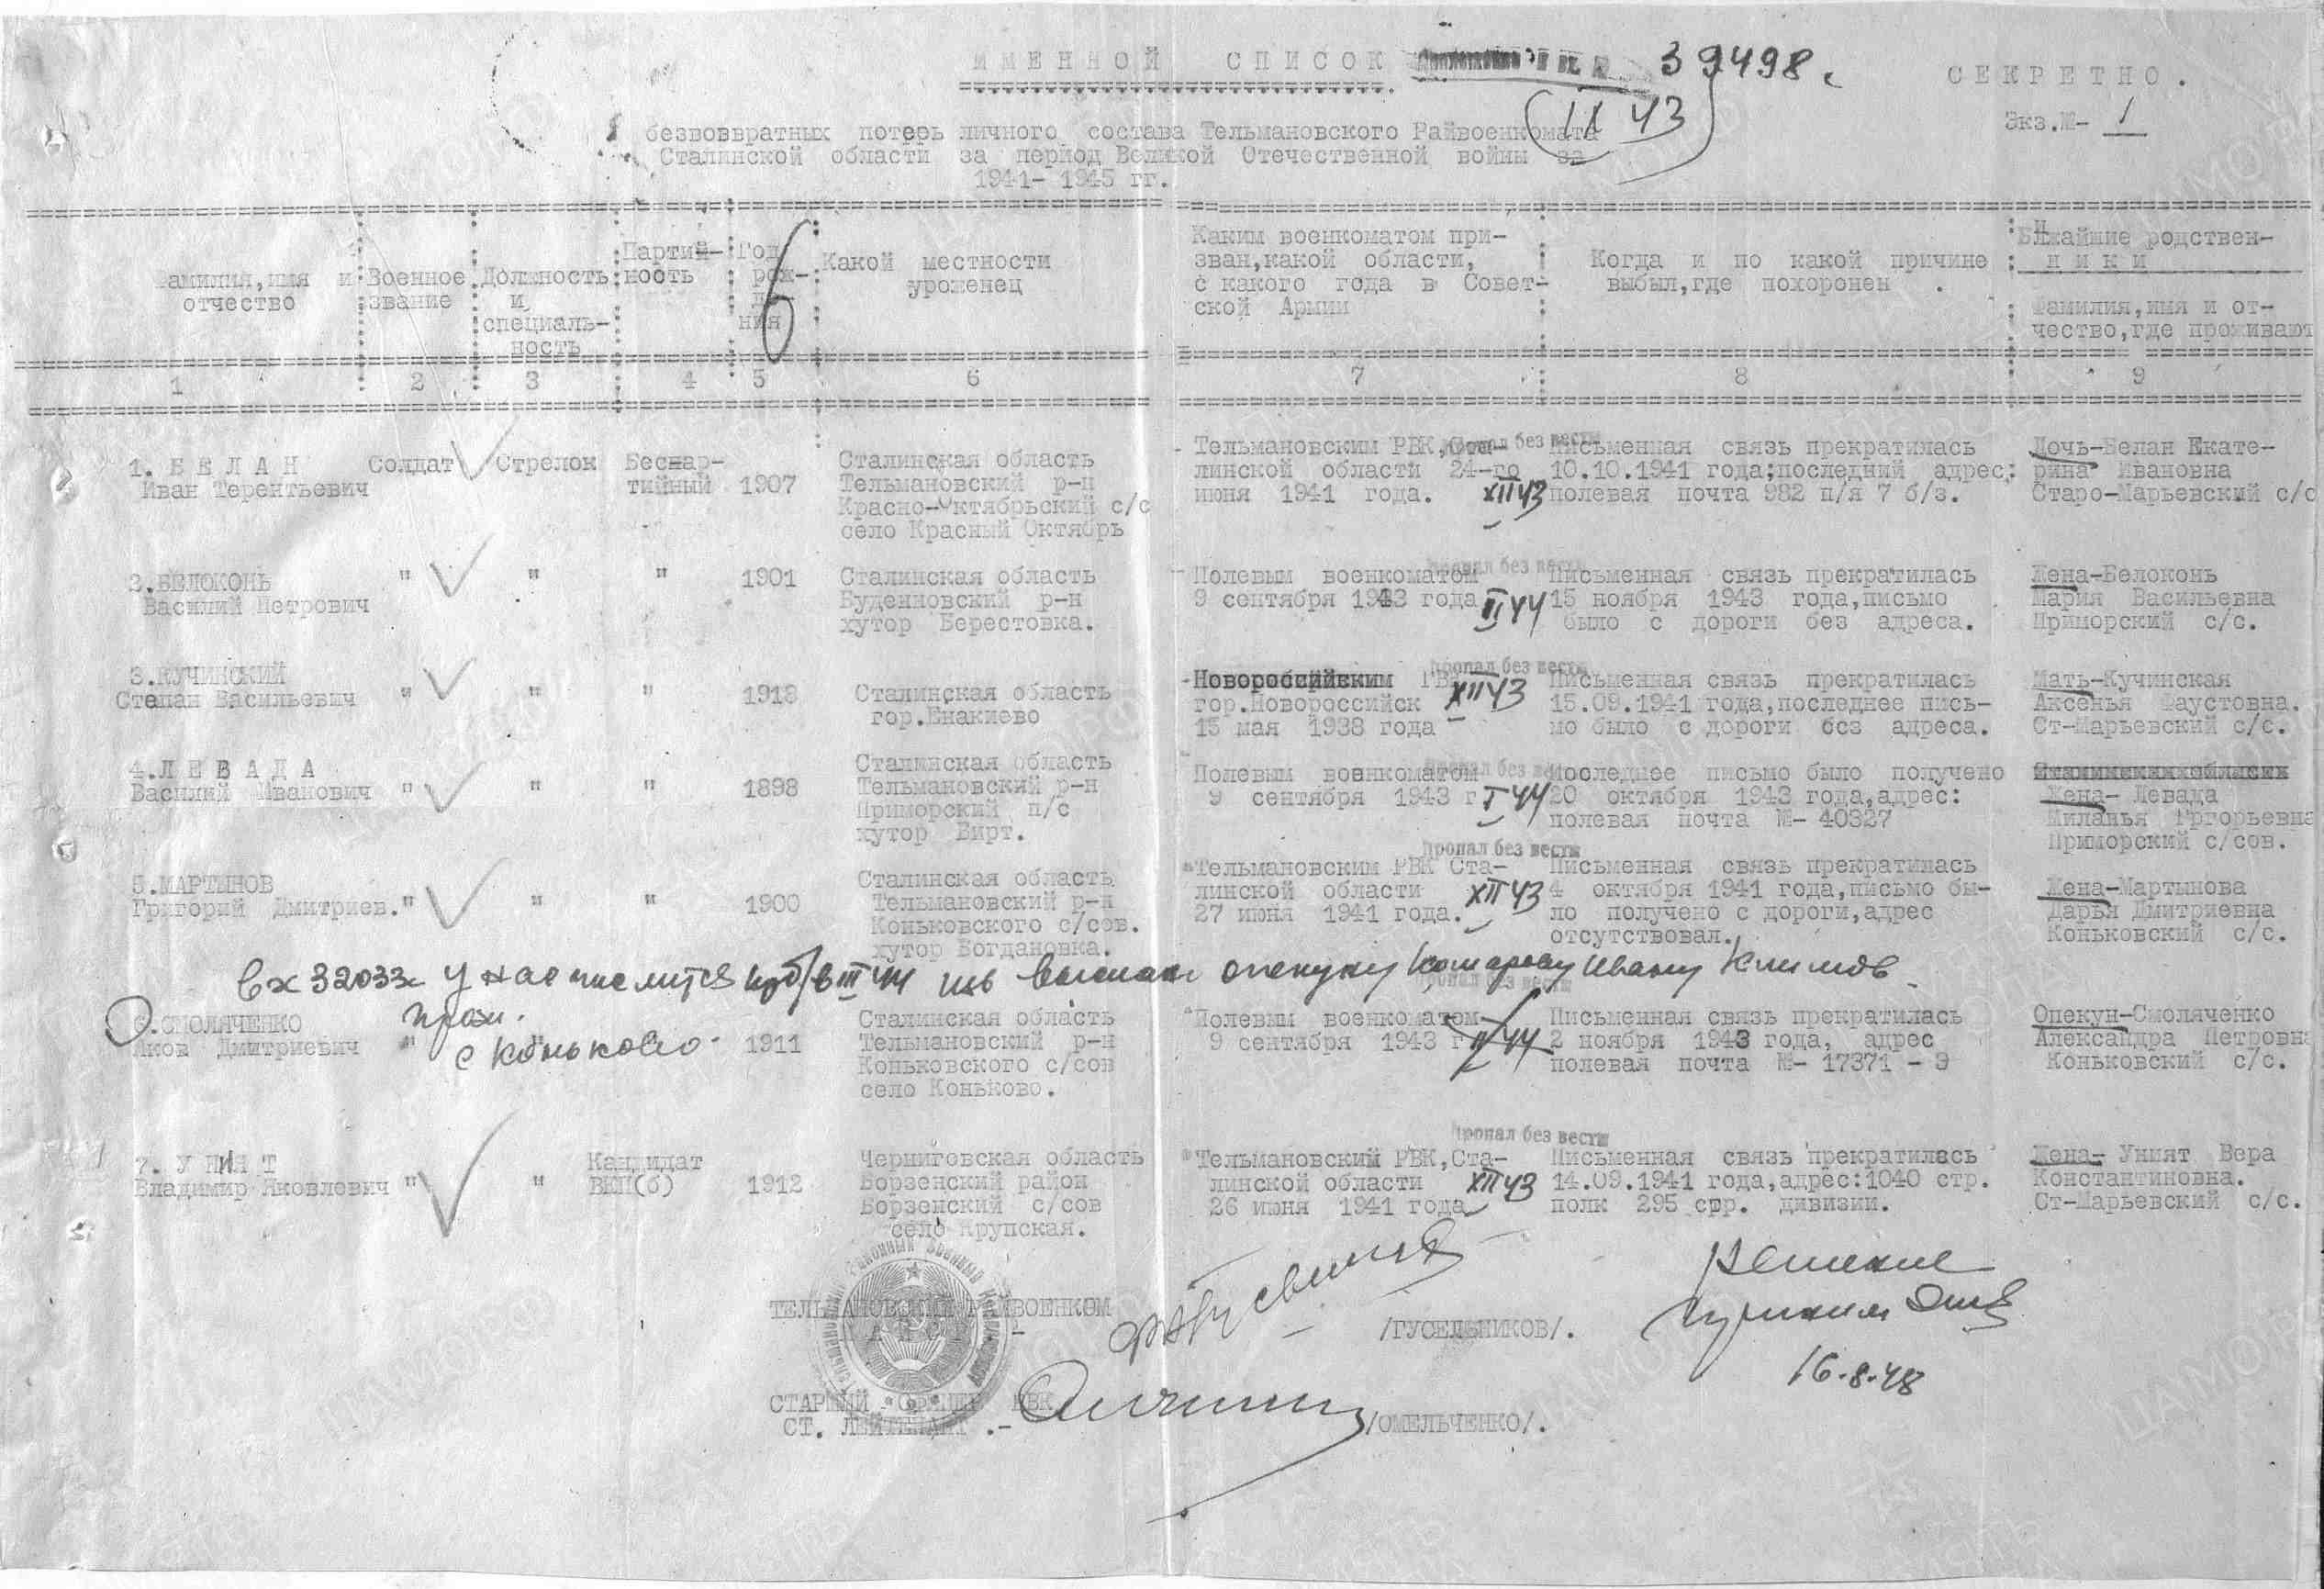 ИМЕННОЙ СПИСОК
39498с
СЕКРЕТНО.
IX 43
Экз.№- 1
безвозвратных потерь личного состава Тельмановского Райвоенкомата
Сталинской области за период Великой Отечественной войны за
1941- 1945 гг.
Фамилия,имя и отчество
Военное звание
Должность и специаль-
ность
Партий-
ность
Год рож-
де-
ния
6
Какой местности
уроженец
Каким военкоматом при-
зван,какой области,
с какого года в Совет-
ской Армии
Когда и по какой причине
выбыл,где похоронен .
Ближайшие родствен-
ники
Фамилия,имя и от-
чество,где проживают
1 2 3 4 5 6 7 8 9
1. БЕЛАН
Иван Терентьевич
Солдат
Стрелок
Беспар-
тийный
1907
Сталинская область
Тельмановский р-н
Красно-Октябрьский с/с
село Красный Октябрь
Пропал без вести
Тельмановским РВК, Ста-
линской области 24-го
июня 1941 года.
XII 43
Письменная связь прекратилась
10.10.1941 года;последний адрес:
полевая почта 982 п/я 7 б/з.
Дочь-Белан Екате-
рина Ивановна
Старо-Марьевский с/с
2.БЕЛОКОНЬ
Василий Петрович
" " "
1901
Сталинская область
Буденновский р-н
хутор Берестовка.
Пропал без вести
Полевым военкоматом
9 сентября 1943 года
II 44
Письменная связь прекратилась
15 ноября 1943 года,письмо
было с дороги без адреса.
Жена-Белоконь
Мария Васильевна
Приморский с/с.
3.КУЧИНСКИЙ
Степан Васильевич
" " "
1918
Сталинская область
гор.Енакиево
Пропал без вести
Новороссийским ГВК
гор.Новороссийск
15 мая 1938 года
XII 43
Письменная связь прекратилась
15.09.1941 года,последнее пись-
мо было с дороги без адреса.
Мать-Кучинская
Аксенья Фаустовна.
Ст-Марьевский с/с.
4.ЛЕВАДА
Василий Иванович
" " "
1898
Сталинская область
Тельмановский р-н
Приморский п/с
хутор Вирт.
Пропал без вести
Полевым военкоматом
9 сентября 1943 г
I 44
последнее письмо было получено
20 октября 1943 года,адрес:
полевая почта №- 40327
Жена- Левада
Миланья Григорьевна
Приморский с/сов.
5.МАРТЫНОВ
Григорий Дмитриев.
" " "
1900
Сталинская область
Тельмановский р-н
Коньковского с/сов.
хутор Богдановка.
Пропал без вести
Тельмановским РВК Ста-
линской области
27 июня 1941 года.
XII 43
Письменная связь прекратилась
4 октября 1941 года,письмо бы-
ло получено с дороги,адрес
отсутствовал.
Жена-Мартынова
Дарья Дмитриевна
Коньковский с/с.
вх 32033с У нас числится пр б/в III 44 изв выслан опекуну Комарову Ивану Климов.
прож.
с Коньково.
6.СМОЛЯЧЕНКО
Яков Дмитриевич
" "
1911
Сталинская область
Тельмановский р-н
Коньковского с/сов
село Коньково.
Пропал без вести
Полевым военкоматом
9 сентября 1943 г
44
Письменная связь прекратилась
2 ноября 1943 года, адрес
полевая почта №- 17371 - Э
Опекун-Смоляченко
Александра Петровна
Коньковский с/с.
7. УНИЯТ
Владимир Яковлевич
" "
Кандидат
ВКП(б)
1912
Черниговская область
Борзенский район
Борзенский с/сов
село Крупская.
Пропал без вести
Тельмановский РВК,Ста-
линской области
26 июня 1941 года
XII 43
Письменная связь прекратилась
14.09.1941 года,адрес:1040 стр.
полк 295 стр. дивизии.
Жена- Уният Вера
Константиновна.
Ст-Марьевский с/с.
ТЕЛЬМАНОВСКИЙ РАЙВОЕНКОМ
/ГУСЕЛЬНИКОВ/.
СТАРШИЙ ОФИЦЕР РВК
СТ. ЛЕЙТЕНАНТ .-
/ОМЕЛЬЧЕНКО/.
16.8.48